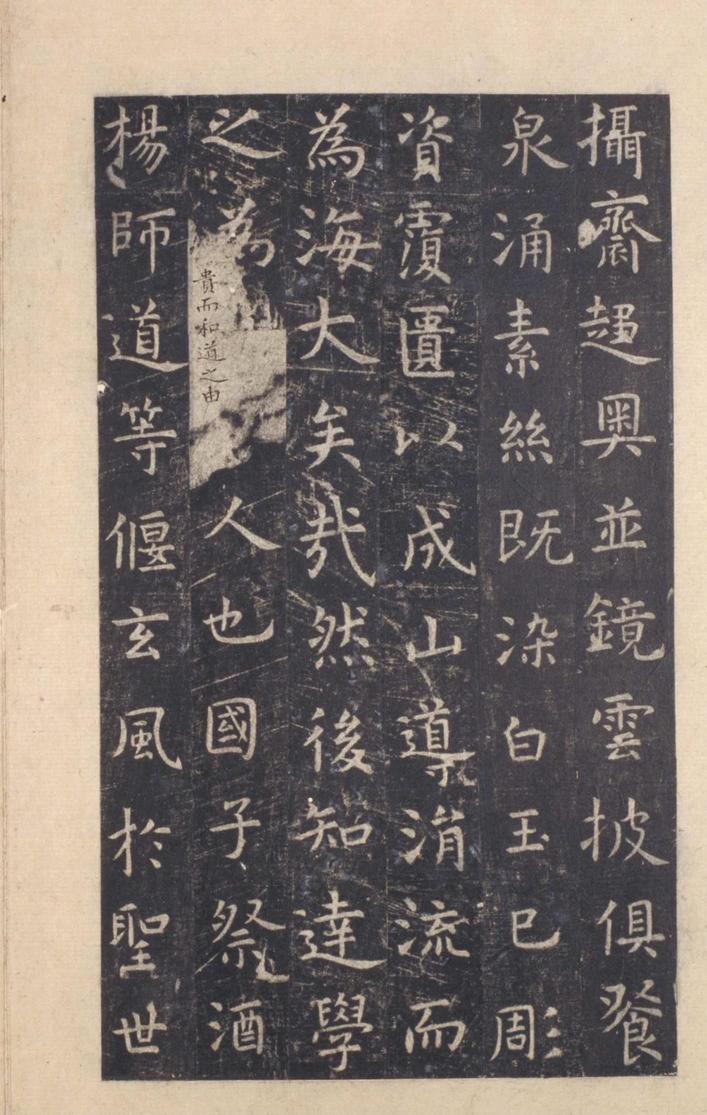 攝齋趨奧並鏡雲披俱飡
泉涌素絲既染白玉已彫
資覆匱以成山導涓流而
為海大矣哉然後知達學
之為
貴而和道之由
人也國子祭酒
楊師道等偃玄風於聖世